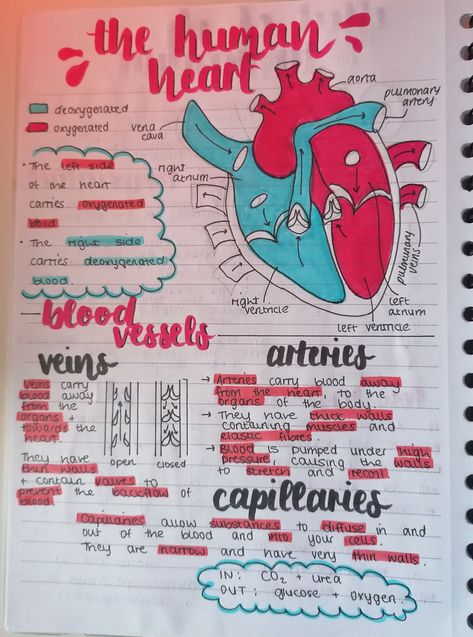 the human
heart
deoxygenated
oxygenated
vena
cava
aorta
pulmonary
artery
right
atrium
• The left side
of the heart
carries oxygenated
blood
• The right side
carries deoxygenated
blood.
pulmonary
veins
right
ventricle
left
atrium
left ventricle
blood
vessels
veins
Veins carry
blood away
from the
organs +
towards the
heart.
They have
thin walls
+ contain valves to
prevent the backflow of
blood.
open
closed
arteries
→ Arteries carry blood away
from the heart, to the
organs of the body.
→ They have thick walls
containing muscles and
elastic fibres.
→ Blood is pumped under high
pressure, causing the walls
to stretch and recoil.
capillaries
Capillaries allow substances to diffuse in and
out of the blood and into your cells.
They are narrow and have very thin walls.
IN: CO2 + urea
OUT: glucose + oxygen.